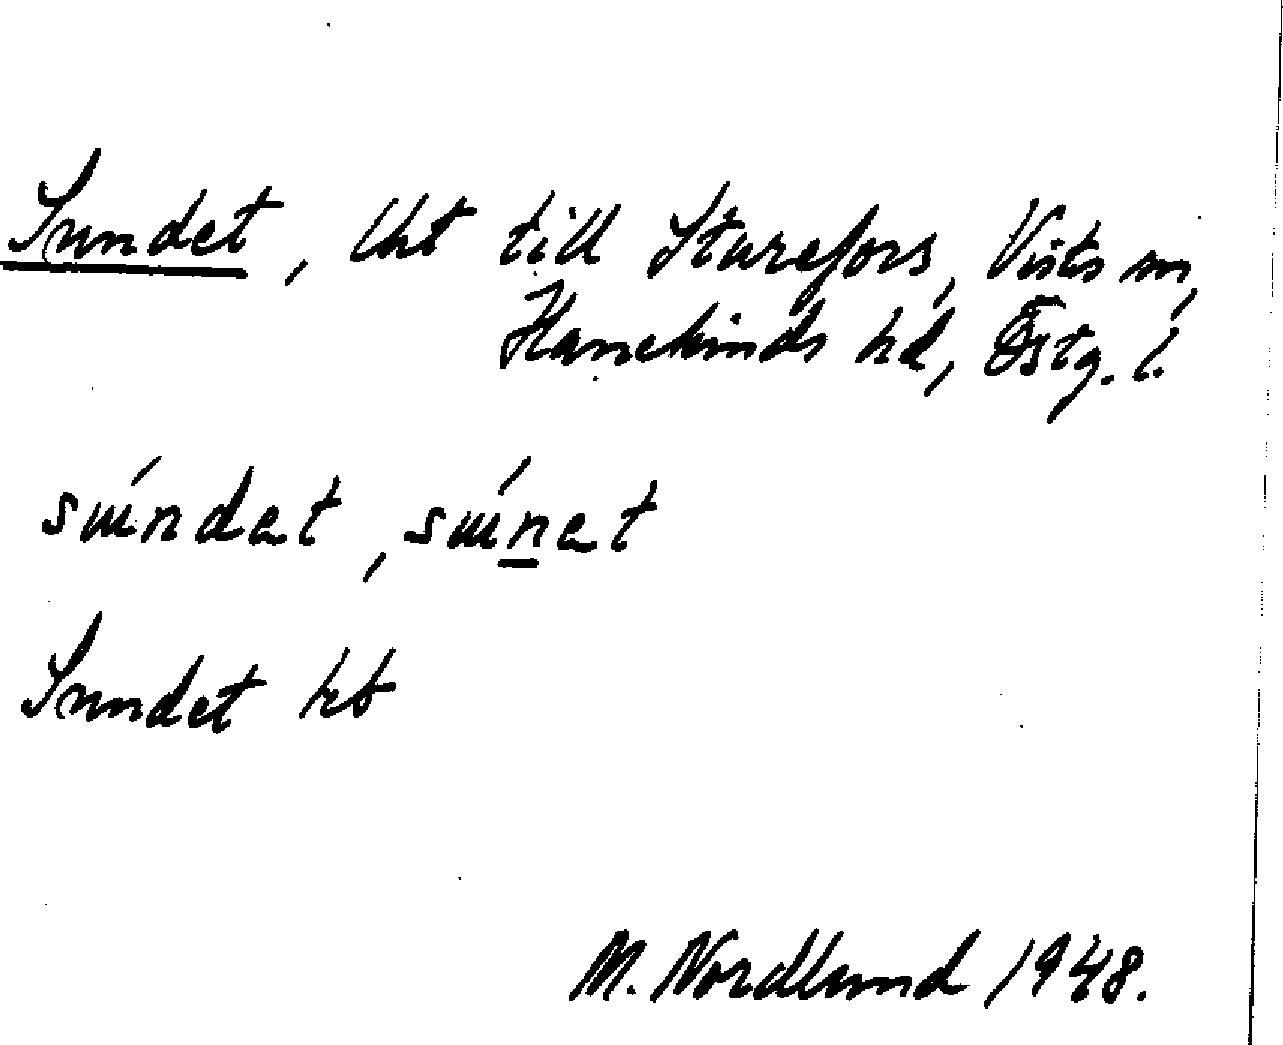 Sundet, lht till Sturefors, Vists sn,
Hanekinds hd, Östg. l.
súndat, súnat
Sundet hb
M. Nordlund 1948.